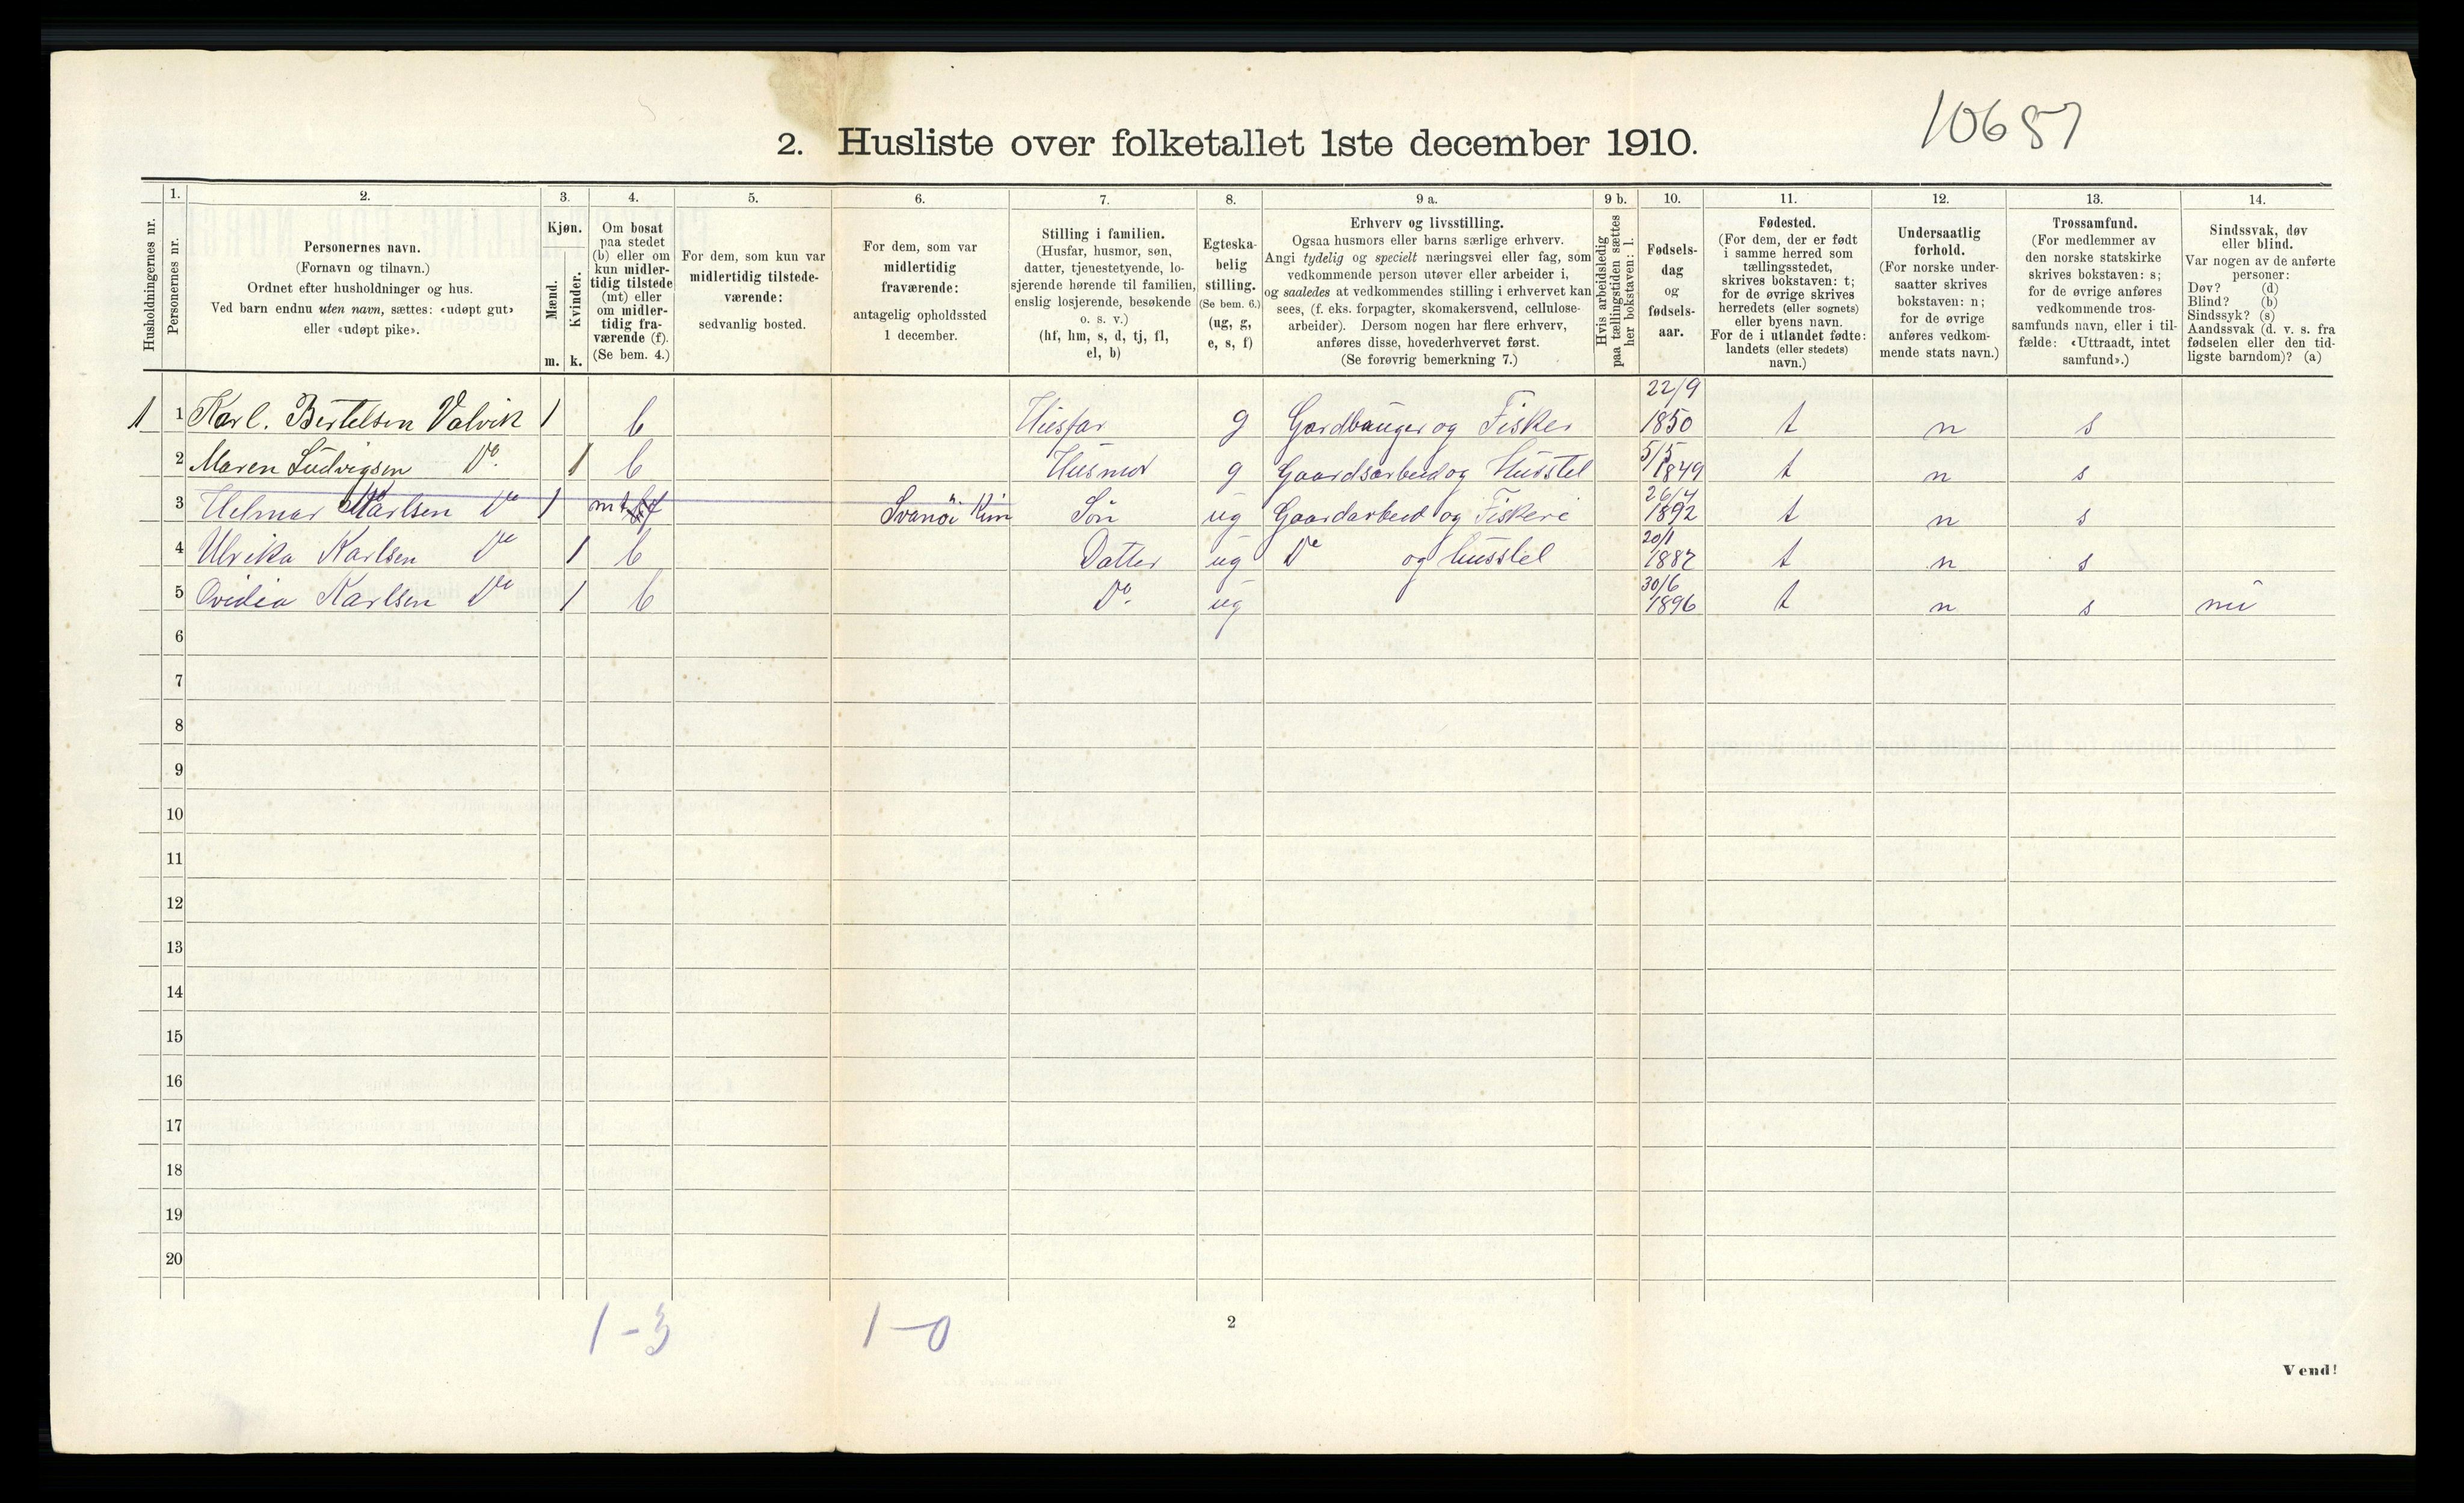 10657
2. Husliste over folketallet 1ste december 1910.
Husholdningernes nr.
1. Personernes nr.
2. Personernes navn. (Fornavn og tilnavn.) Ordnet efter husholdninger og hus. Ved barn endnu uten navn, sættes: «udøpt gut» eller «udøpt pike».
3. Kjøn. Mænd. m. Kvinder. k.
4. Om bosat paa stedet (b) eller om kun midlertidig tilstede (mt) eller om midlertidig fraværende (f). (Se bem. 4.)
5. For dem, som kun var midlertidig tilstedeværende: sedvanlig bosted.
6. For dem, som var midlertidig fraværende: antagelig opholdssted 1 december.
7. Stilling i familien. (Husfar, husmor, søn, datter, tjenestetyende, losjerende hørende til familien, enslig losjerende, besøkende o. s. v.) (hf, hm, s, d, tj, fl, el, b)
8. Egteskabelig stilling. (Se bem. 6.) (ug, g, e, s, f)
9 a. Erhverv og livsstilling. Ogsaa husmors eller barns særlige erhverv. Angi tydelig og specielt næringsvei eller fag, som vedkommende person utøver eller arbeider i, og saaledes at vedkommendes stilling i erhvervet kan sees, (f. eks. forpagter, skomakersvend, cellulosearbeider). Dersom nogen har flere erhverv, anføres disse, hovederhvervet først. (Se forøvrig bemerkning 7.)
9 b. Hvis arbeidsledig paa tællingstiden sættes her bokstaven: l.
10. Fødselsdag og fødselsaar.
11. Fødested. (For dem, der er født i samme herred som tællingsstedet, skrives bokstaven: t; for de øvrige skrives herredets (eller sognets) eller byens navn. For de i utlandet fødte: landets (eller stedets) navn.)
12. Undersaatlig forhold. (For norske undersaatter skrives bokstaven: n; for de øvrige anføres vedkommende stats navn.)
13. Trossamfund. (For medlemmer av den norske statskirke skrives bokstaven: s; for de øvrige anføres vedkommende trossamfunds navn, eller i tilfælde: «Uttraadt, intet samfund».)
14. Sindssvak, døv eller blind. Var nogen av de anførte personer: Døv? (d) Blind? (b) Sindssyk? (s) Aandssvak (d. v. s. fra fødselen eller den tidligste barndom)? (a)
1 1 Karl. Bertelsen Valvik 1 b Husfar g Gardbruger og Fisker 22/9 1850 t n s
2 Maren Ludvigsen Do. 1 b Husmor g Gaardsarbeid og Husstel 5/5 1849 t n s
3 Helmar Karlsen Do 1 mt Svanöi Kinn Sön ug Gaardarbeid og Fiskeri 26/4 1892 t n s
4 Ulrika Karlsen Do 1 b Datter ug Do og husstel 20/1 1887 t n s
5 Ovidia Karlsen Do 1 b Do. ug 30/6 1896 t n s
6
7
8
9
10
11
12
13
14
15
16
17
18
19
20
1-3 1-0
2
Vend!